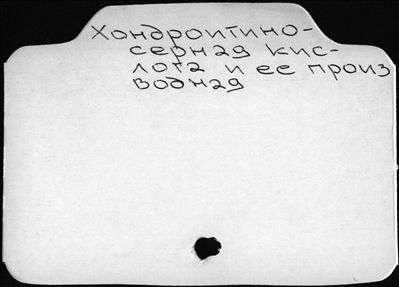 Хондроитино-
серная кис-
лота и ее произ
водная